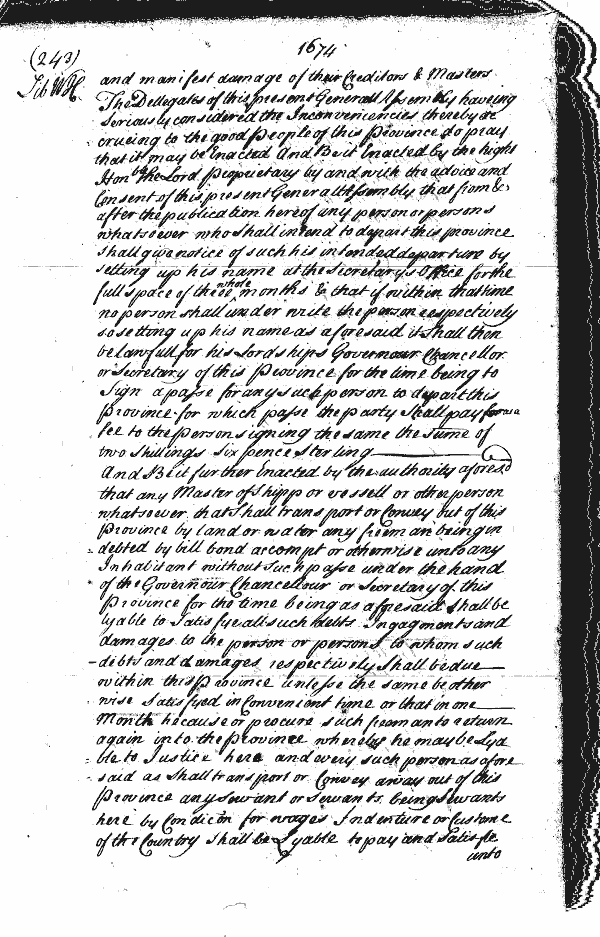 1674
(243)
Lib WH
and manifest damage of their Creditors & Masters
The Dellegates of this present Generall Assembly haveing
Seriously considered the Inconveniencies thereby ac
crueing to the good People of this Province do pray
that it may be Enacted And Be it Enacted by the Right
Honble the Lord Proprietary by and with the advice and
Consent of this present Generall Assembly that from &
after the publication hereof any person or persons
whatsoever who shall intend to depart this province
Shall give notice of such his intended departure by
setting up his name at the Secretarys Office for the
full space of three whole months & that if within that time
no person shall under write the person respectively
so setting up his name as aforesaid it Shall then
be lawfull for his Lordships Governour Chancellor
or Secretary of this Province for the time being to
Sign a passe for any such person to depart this
Province for which passe the party Shall pay for a
fee to the person signing the same the Sume of
two Shillings Six pence Sterling
And Be it further Enacted by the authority aforesd
that any Master of Shipp or vessell or other person
whatsoever that Shall transport or Convey out of this
Province by land or water any freeman being in
debted by bill bond accompt or otherwise unto any
Inhabitant without such passe under the hand
of the Governour Chancellour or Secretary of this
Province for the time being as aforesaid Shall be
lyable to Satisfye all such debts Ingagments and
damages to the person or persons to whom such
debts and damages respectively Shall be due
within this Province unlesse the same be other
wise Satisfyed in Convenient time or that in one
Month he cause or procure such freeman to return
again into the Province whereby he may be Lya
ble to Justice here and every such person as afore
said as Shall transport or Convey away out of this
Province any Servant or Servants being Servants
here by Condicon for wages Indenture or Custome
of the Country Shall be Lyable to pay and Satisfie
unto